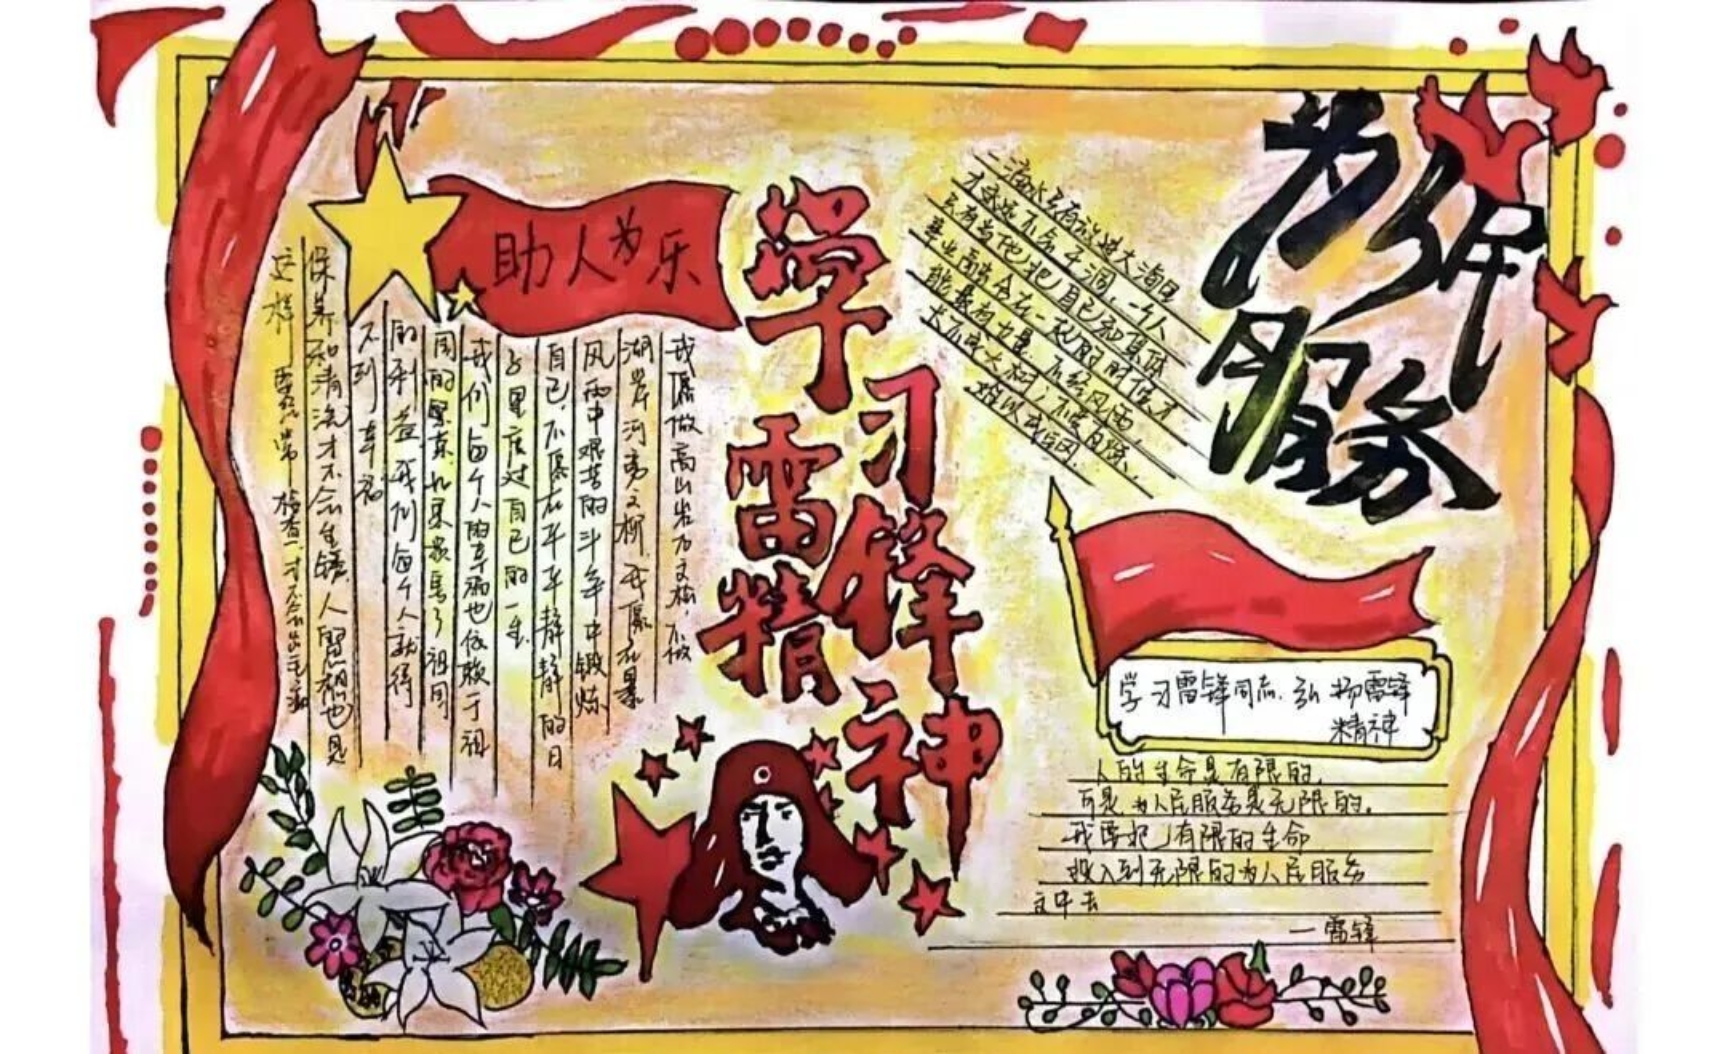 助人为乐
我愿做高山岩石之松,不做
湖岸河旁之柳。我愿在暴
风雨中艰苦的斗争中锻炼
自己,不愿在平平静静的日
子里度过自己的一生.
我们每个人的幸福也依赖于祖
国的
的利益,我们每个人就得
不到幸福
保养和清洗才不会生锈.人的思想也是
这样
检查
学习
雷锋
精神
一滴水只有放进大海里
才永远不会干涸,一个人
只有当他把自己和集体
事业融合在一起的时候才
能最有力量.不经风雨,
长不成大树;不受百炼,
难以成钢.
为人民
服务
学习雷锋同志.弘扬雷锋
精神
人的生命是有限的,
可是,为人民服务是无限的.
我要把有限的生命
投入到无限的为人民服务
之中去
—雷锋